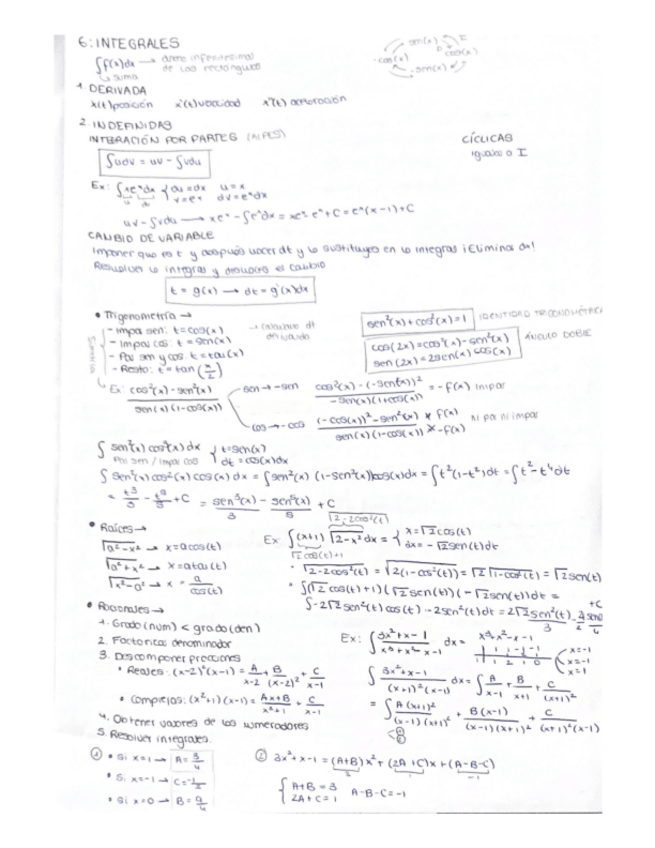 6: INTEGRALES
∫f(x)dx → área infinitesimal de los rectángulos
↳ suma
sen(x) cos(x) -sen(x) -cos(x) D I
1. DERIVADA
x(t) posición x'(t) velocidad x''(t) aceleración
2. INDEFINIDAS
INTEGRACIÓN POR PARTES (ALPES)
CÍCLICAS
igualar a I
∫udv = uv - ∫vdu
Ex: ∫xe^x dx { du = dx u = x
v = e^x dv = e^x dx
uv - ∫vdu → xe^x - ∫e^x dx = xe^x - e^x + C = e^x(x-1) + C
CAMBIO DE VARIABLE
Imponer que es t y después hacer dt y lo sustituyes en la integral ¡Elimina dx!
Resuelves la integral y deshaces el cambio
t = g(x) → dt = g'(x)dx
• Trigonometría →
- Impar sen: t = cos(x)
- Impar cos: t = sen(x)
- Par sen y cos: t = tan(x)
- Resto: t = tan(x/2)
sen²(x) + cos²(x) = 1 IDENTIDAD TRIGONOMÉTRICA
cos(2x) = cos²(x) - sen²(x)
sen(2x) = 2sen(x)cos(x)
ÁNGULO DOBLE
Ex: cos²(x) - sen²(x) / sen(x)(1-cos(x))
sen → -sen cos²(x) - (-sen(x))² / -sen(x)(1+cos(x)) = -f(x) impar
cos → -cos (-cos(x))² - sen²(x) / sen(x)(1-cos(x)) ≠ f(x) ≠ -f(x) ni par ni impar
∫sen²(x)cos³(x)dx { t = sen(x)
Par sen / impar cos dt = cos(x)dx
∫sen²(x)cos²(x)cos(x)dx = ∫sen²(x)(1-sen²(x))cos(x)dx = ∫t²(1-t²)dt = ∫t²-t⁴dt
= t³/3 - t⁵/5 + C = sen³(x)/3 - sen⁵(x)/5 + C
• Raíces →
√(a²-x²) → x = acos(t)
√(a²+x²) → x = atan(t)
√(x²-a²) → x = a/cos(t)
Ex: ∫(x+1)√(2-x²)dx = { x = √2cos(t)
dx = -√2sen(t)dt
√(2-2cos²(t))
√2cos(t)+1
• √(2-2cos²(t)) = √(2(1-cos²(t))) = √2√(1-cos²(t)) = √2sen(t)
• ∫(√2cos(t)+1)(√2sen(t))(-√2sen(t))dt =
∫-2√2sen²(t)cos(t) - 2sen²(t)dt
+C
• Racionales →
1. Grado(num) < grado(den)
2. Factorizas denominador
3. Descomponer fracciones
• Reales: (x-2)²(x-1) = A/(x-2) + B/(x-2)² + C/(x-1)
• Complejas: (x²+1)(x-1) = (Ax+B)/(x²+1) + C/(x-1)
4. Obtener valores de los numeradores
5. Resolver integrales
Ex: ∫(3x²+x-1)/(x³+x²-x-1) dx = x³+x²-x-1
x=-1
x=-1
x=1
∫(3x²+x-1)/((x+1)²(x-1)) dx = ∫A/(x-1) + B/(x+1) + C/(x+1)²
= ∫A(x+1)²/((x-1)(x+1)²) + B(x-1)/((x-1)(x+1)²) + C/((x+1)²(x-1))
① • Si x=1 → A = 3/4
• Si x=-1 → C = -1/2
• Si x=0 → B = 9/4
② 3x²+x-1 = (A+B)x² + (2A+C)x + (A-B-C)
{ A+B = 3
2A+C = 1 A-B-C = -1